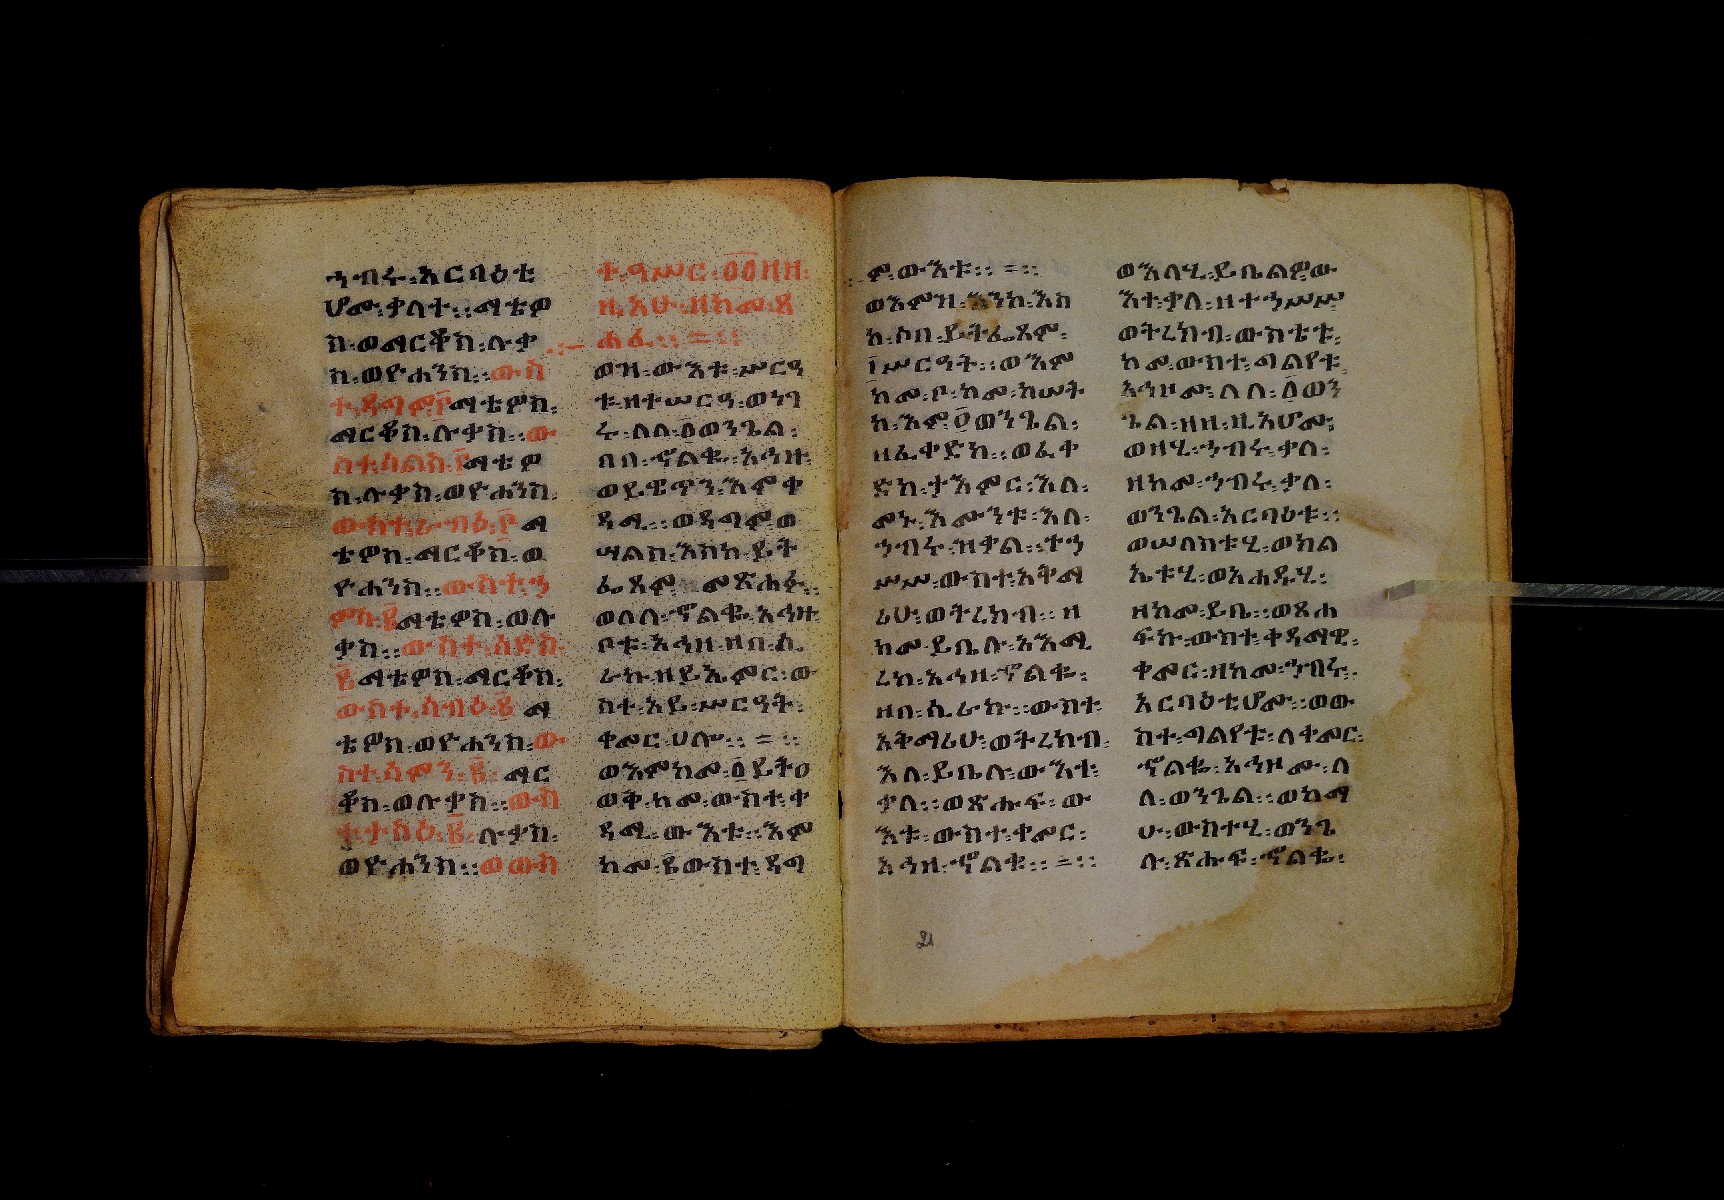 ኀብሩ፡አርባዕቲ
ሆሙ፡ቃላተ፡፡ማቴዎ
ስ፡ወማርቆስ፡ሉቃ
ስ፡ወዮሐንስ፡፡ውስ
ተ፡ዳግም፡፫ማቴዎስ፡
ማርቆስ፡ሉቃስ፡፡ው
ስተ፡ሳልስ፡፫ማቴዎ
ስ፡ሉቃስ፡ወዮሐንስ፡
ውስተ፡ራብዕ፡፫ማ
ቴዎስ፡ማርቆስ፡ወ
ዮሐንስ፡፡ውስተ፡ኃ
ምስ፡፪ማቴዎስ፡ወሉ
ቃስ፡፡ውስተ፡ሳድስ፡
፪ማቴዎስ፡ማርቆስ፡
ውስተ፡ሳብዕ፡፪ማ
ቴዎስ፡ወዮሐንስ፡ው
ስተ፡ሳምን፡፪፡ማር
ቆስ፡ወሉቃስ፡፡ውስ
ተ፡ታስዕ፡፪፡ሉቃስ፡
ወዮሐንስ፡፡ወውስ
ተ፡ዓሥር፡፩፩ዘዘ፡
ዚአሁ፡ዘከመ፡ጸ
ሐፈ፡፡=፡፡
ወዝ፡ውእቱ፡ሥርዓ
ቱ፡ዘተሠርዓ፡ወነገ
ሩ፡ለለ፩ወንጌል፡
በበ፡ኆልቁ፡አኀዙ፡
ወይዌጥን፡እምቀ
ዳሚ፡፡ወዳግም፡ወ
ሣልስ፡እስከ፡ይት
ፌጸም፡መጽሐፉ፡፡
ወለለ፡ኆልቁ፡አኀዙ፡
ቦቱ፡አኀዘ፡ዘበ፡ሲ
ራኩ፡ዘይኤምር፡ው
ስተ፡አይ፡ሥርዓት፡
ቀመር፡ሀሎ፡፡=፡፡
ወእምከመ፡፩ይትዐ
ወቅ፡ከመ፡ውስተ፡ቀ
ዳሚ፡ውእቱ፡፡እም
ከመ፡፪ውስተ፡ዳግ
ም፡ውእቱ፡፡=፡፡
ወእምዝ፡እንከ፡እስ
ከ፡ሶበ፡ይትፌጸም፡
፲ሥርዓት፡፡ወእም
ከመ፡ቦ፡ከመ፡ከሠት
ከ፡እም፡፬ወንጌል፡
ዘፈቀድከ፡፡ወፈቀ
ድከ፡ታእምር፡እለ፡
መኑ፡እሙንቱ፡እለ፡
ኀብሩ፡ዝቃል፡፡ተኀ
ሥሥ፡ውስተ፡አቅማ
ሪሁ፡ወትረክብ፡፡ዘ
ከመ፡ይቤሉ፡አእሚ
ረከ፡አኀዘ፡ኆልቁ፡
ዘበ፡ሲራኩ፡፡ውስተ፡
አቅማሪሁ፡ወትረክብ፡
እለ፡ይቤሉ፡ውእተ፡
ቃለ፡፡ወጽሑፍ፡ው
እቱ፡ውስተ፡ቀመር፡
አኀዘ፡ኆልቁ፡፡=፡፡
21
ወእለሂ፡ይቤልዎው
እተ፡ቃለ፡ዘተኃሥሥ
ወትረክብ፡ውስቴቱ፡
ከመ፡ውስተ፡ጣልየቱ፡
አኀዞሙ፡ለለ፡፩ወን
ጌል፡ዘዘ፡ዚአሆሙ፡
ወዘሂ፡ኀብሩ፡ቃለ፡
ዘከመ፡ኀብሩ፡ቃለ፡
ወንጌል፡አርባዕቱ፡፡
ወሠለስቱሂ፡ወክል
ኤቱሂ፡ወአሐዱሂ፡
ዘከመ፡ይቤ፡፡ወጸሐ
ፍኩ፡ውስተ፡ቀዳማዊ፡
ቀመር፡ዘከመ፡ኀብሩ፡
አርባዕቲሆሙ፡፡ወው
ስተ፡ጣልየቱ፡ለቀመር፡
ኆልቁ፡አኀዞሙ፡ለ
ለ፡ወንጌል፡፡ወከማ
ሁ፡ውስተሂ፡ወንጌ
ሉ፡ጽሑፍ፡ኆልቁ፡